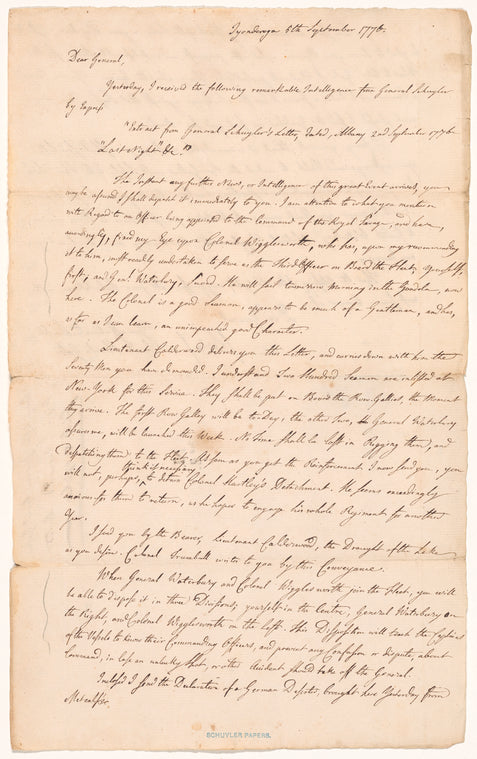 Tyonderoga 5th September 1776.
Dear General,
Yesterday, I received the following remarkable Intelligence from General Schuyler
by Express
"Extract from General Schuyler's Letter, dated, Albany 2nd September 1776
"Last Night" &c."
The Instant any further News, or Intelligence of this great Event arrives, you
may be assured I shall dispatch it immediately to you. I am attentive to what you mention
with Regard to an Officer being appointed to the Command of the Royal Savage, and have,
accordingly, fixed my Eye upon Colonel Wigglesworth, who has, upon my recommending
it to him, most readily undertaken to serve as the Third Officer on Board the Fleet; yourself
first, and Genl. Waterbury, Second. He will sail tomorrow Morning in the Gondola, now
here. The Colonel is a good Seaman, appears to be much of a Gentleman, and has,
as far as I can learn, an unimpeached good Character.
Lieutenant Calderwood delivers you this Letter, and carries down with him the
Seventy Men you have demanded. I understand Two Hundred Seamen are raised at
New-York for this Service. They shall be put on Board the Row-Gallies, the Moment
they arrive. The first Row Galley will be to Day; the other Two, General Waterbury
assures me, will be launched this Week. No Time shall be lost in Rigging them, and
dispatching them to the Fleet. As soon as you get the Reinforcement I now send you, you
will not, perhaps, think it necessary to detain Colonel Hartley's Detachment. He seems exceedingly
anxious for them to return, as he hopes to engage his whole Regiment for another
Year.
I send you by the Bearer, Lieutenant Calderwood, the Draught of the Lake
as you desire. Colonel Trumbull writes to you by this Conveyance.
When General Waterbury and Colonel Wigglesworth join the Fleet, you will
be able to dispose it in three Divisions; yourself in the Centre, General Waterbury on
the Right, and Colonel Wigglesworth on the left. This Disposition will teach the Captains
of the Vessels to know their Commanding Officers, and prevent any Confusion or dispute, about
Command, in Case an unlucky Shot, or other Accident should take off the General.
Inclosed I send the Declaration of a German Deserter, brought here Yesterday from
Metcalfs.
SCHUYLER PAPERS.